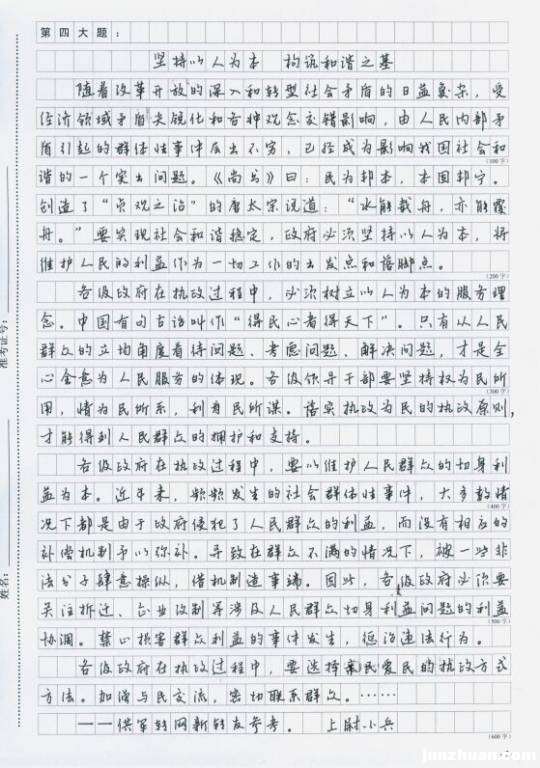 第四大题:
坚持以人为本 构筑和谐之基
随着改革开放的深入和转型社会矛盾的日益复杂,受
经济领域矛盾尖锐化和各种观念交错影响,由人民内部矛
盾引起的群体性事件层出不穷,已经成为影响我国社会和
(100字)
谐的一个突出问题。《尚书》曰:民为邦本,本固邦宁。
创造了“贞观之治”的唐太宗说道:“水能载舟,亦能覆
舟。”要实现社会和谐稳定,政府必须坚持以人为本,将
维护人民的利益作为一切工作的出发点和落脚点。
(200字)
各级政府在执政过程中,必须树立以人为本的服务理
念。中国有句古语叫作“得民心者得天下”。只有从人民
群众的立场角度看待问题、考虑问题、解决问题,才是全
心全意为人民服务的体现。各级领导干部要坚持权为民所
(300字)
用,情为民所系,利为民所谋。落实执政为民的执政原则,
才能得到人民群众的拥护和支持。
各级政府在执政过程中,要以维护人民群众的切身利
益为本。近年来,频频发生的社会群体性事件,大多数情
(400字)
况下都是由于政府侵犯了人民群众的利益,而没有相应的
补偿机制予以弥补。导致在群众不满的情况下,被一些非
法分子肆意操纵,借机制造事端。因此,各级政府必须要
关注拆迁、企业改制等涉及人民群众切身利益问题的利益
(500字)
协调。禁止损害群众利益的事件发生,惩治违法行为。
各级政府在执政过程中,要选择亲民爱民的执政方式
方法。加深与民交流,密切联系群众。……
——供军转网新转友参考。 上尉小兵
(600字)
准考证号:
姓名:
junzhuan.com